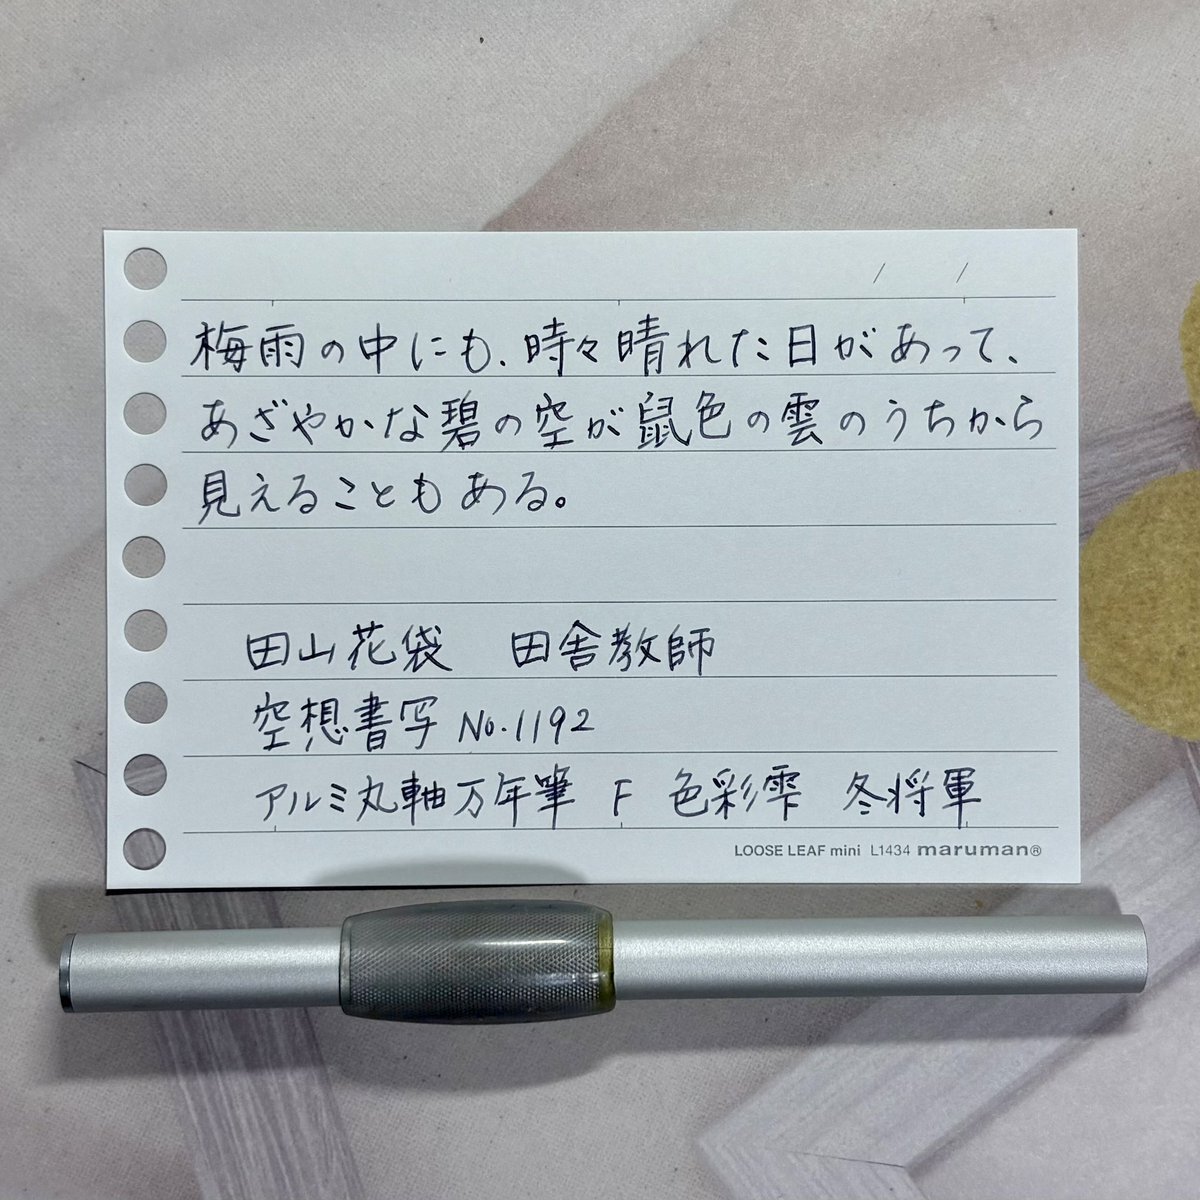 / /
梅雨の中にも、時々晴れた日があって、
あざやかな碧の空が鼠色の雲のうちから
見えることもある。
田山花袋 田舎教師
空想書写 No.1192
アルミ丸軸万年筆 F 色彩雫 冬将軍
LOOSE LEAF mini L1434 maruman®